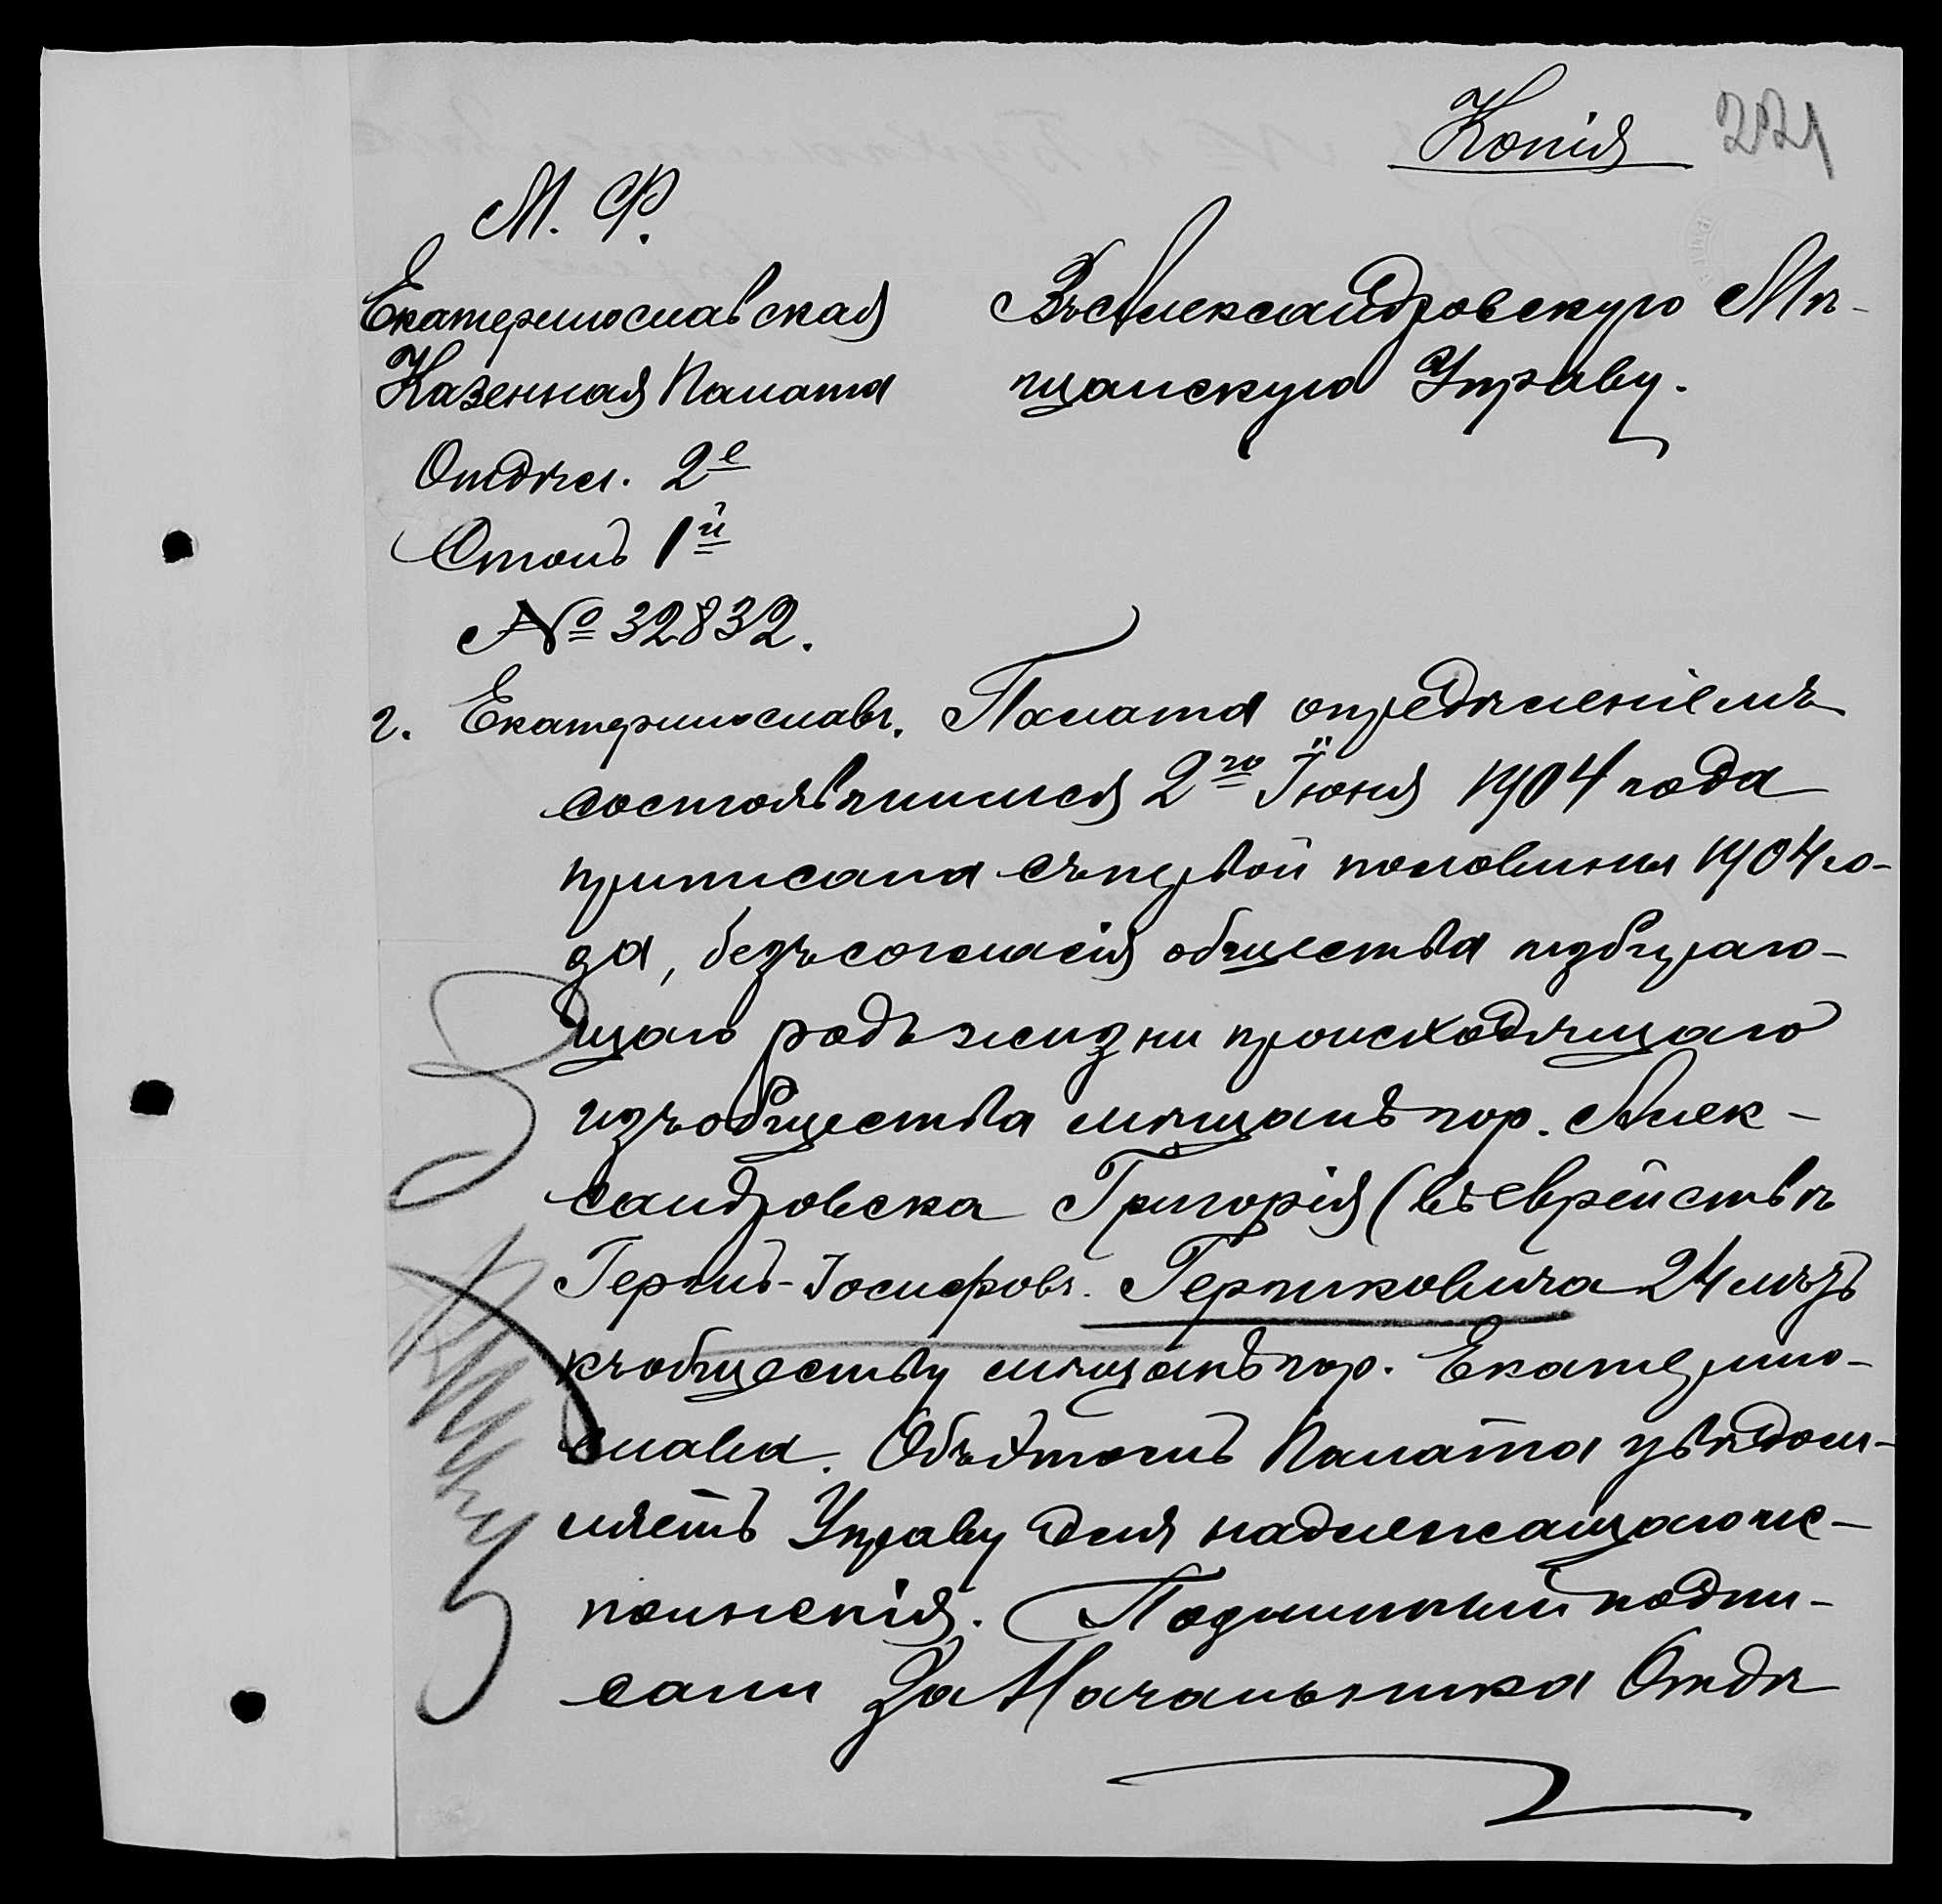 Копія 221
М. Ф.
Екатеринославская
Казенная Палата
Отдѣл. 2е
Столъ 1й
№ 32832.
г. Екатеринославъ.
Въ Александровскую Мѣ-
щанскую Управу.
Палата опредѣленіемъ
состоявшимся 2го Іюня 1904 года
приписала съ первой половины 1904 го-
да, безъ согласія общества избираю-
щаго родъ жизни происходящаго
изъ общества мѣщанъ гор. Алек-
сандровска Григорія (въ еврействѣ
Гершъ-Іосифовъ. Гершковича 24 лѣтъ
къ обществу мѣщанъ гор. Екатерино-
слава. Объ этомъ Палата увѣдом-
ляетъ Управу для надлежащаго ис-
полненія. Подлинный подпи-
сали За Начальника Отдѣ